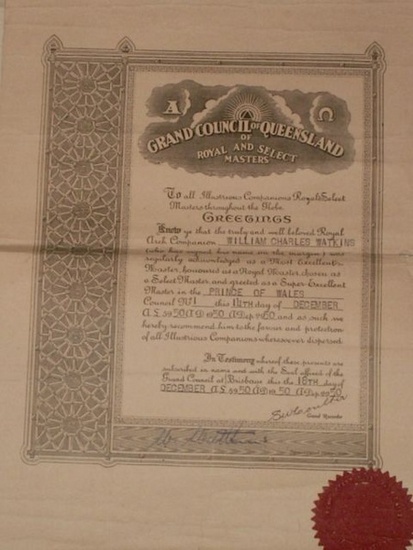 A Ω
GRAND COUNCIL OF QUEENSLAND
OF
ROYAL AND SELECT
MASTERS
To all Illustrious Companions Royal & Select
Masters throughout the Globe.
GREETINGS
Know ye that the truly and well beloved Royal
Arch Companion WILLIAM CHARLES WATKINS
(who has signed his name on the margin) was
regularly acknowledged as a Most Excellent
Master, honoured as a Royal Master, chosen as
a Select Master and greeted as a Super-Excellent
Master in the PRINCE OF WALES
Council No 1 this 18TH day of DECEMBER
A.L. 5950 A.D. 1950 A.Dep. and as such we
hereby recommend him to the favour and protection
of all Illustrious Companions wheresoever dispersed.
In Testimony whereof these presents are
subscribed in name and with the Seal affixed of the
Grand Council at Brisbane this the 18TH day of
DECEMBER A.L. 5950 A.D. 1950 A.Dep.
Grand Recorder